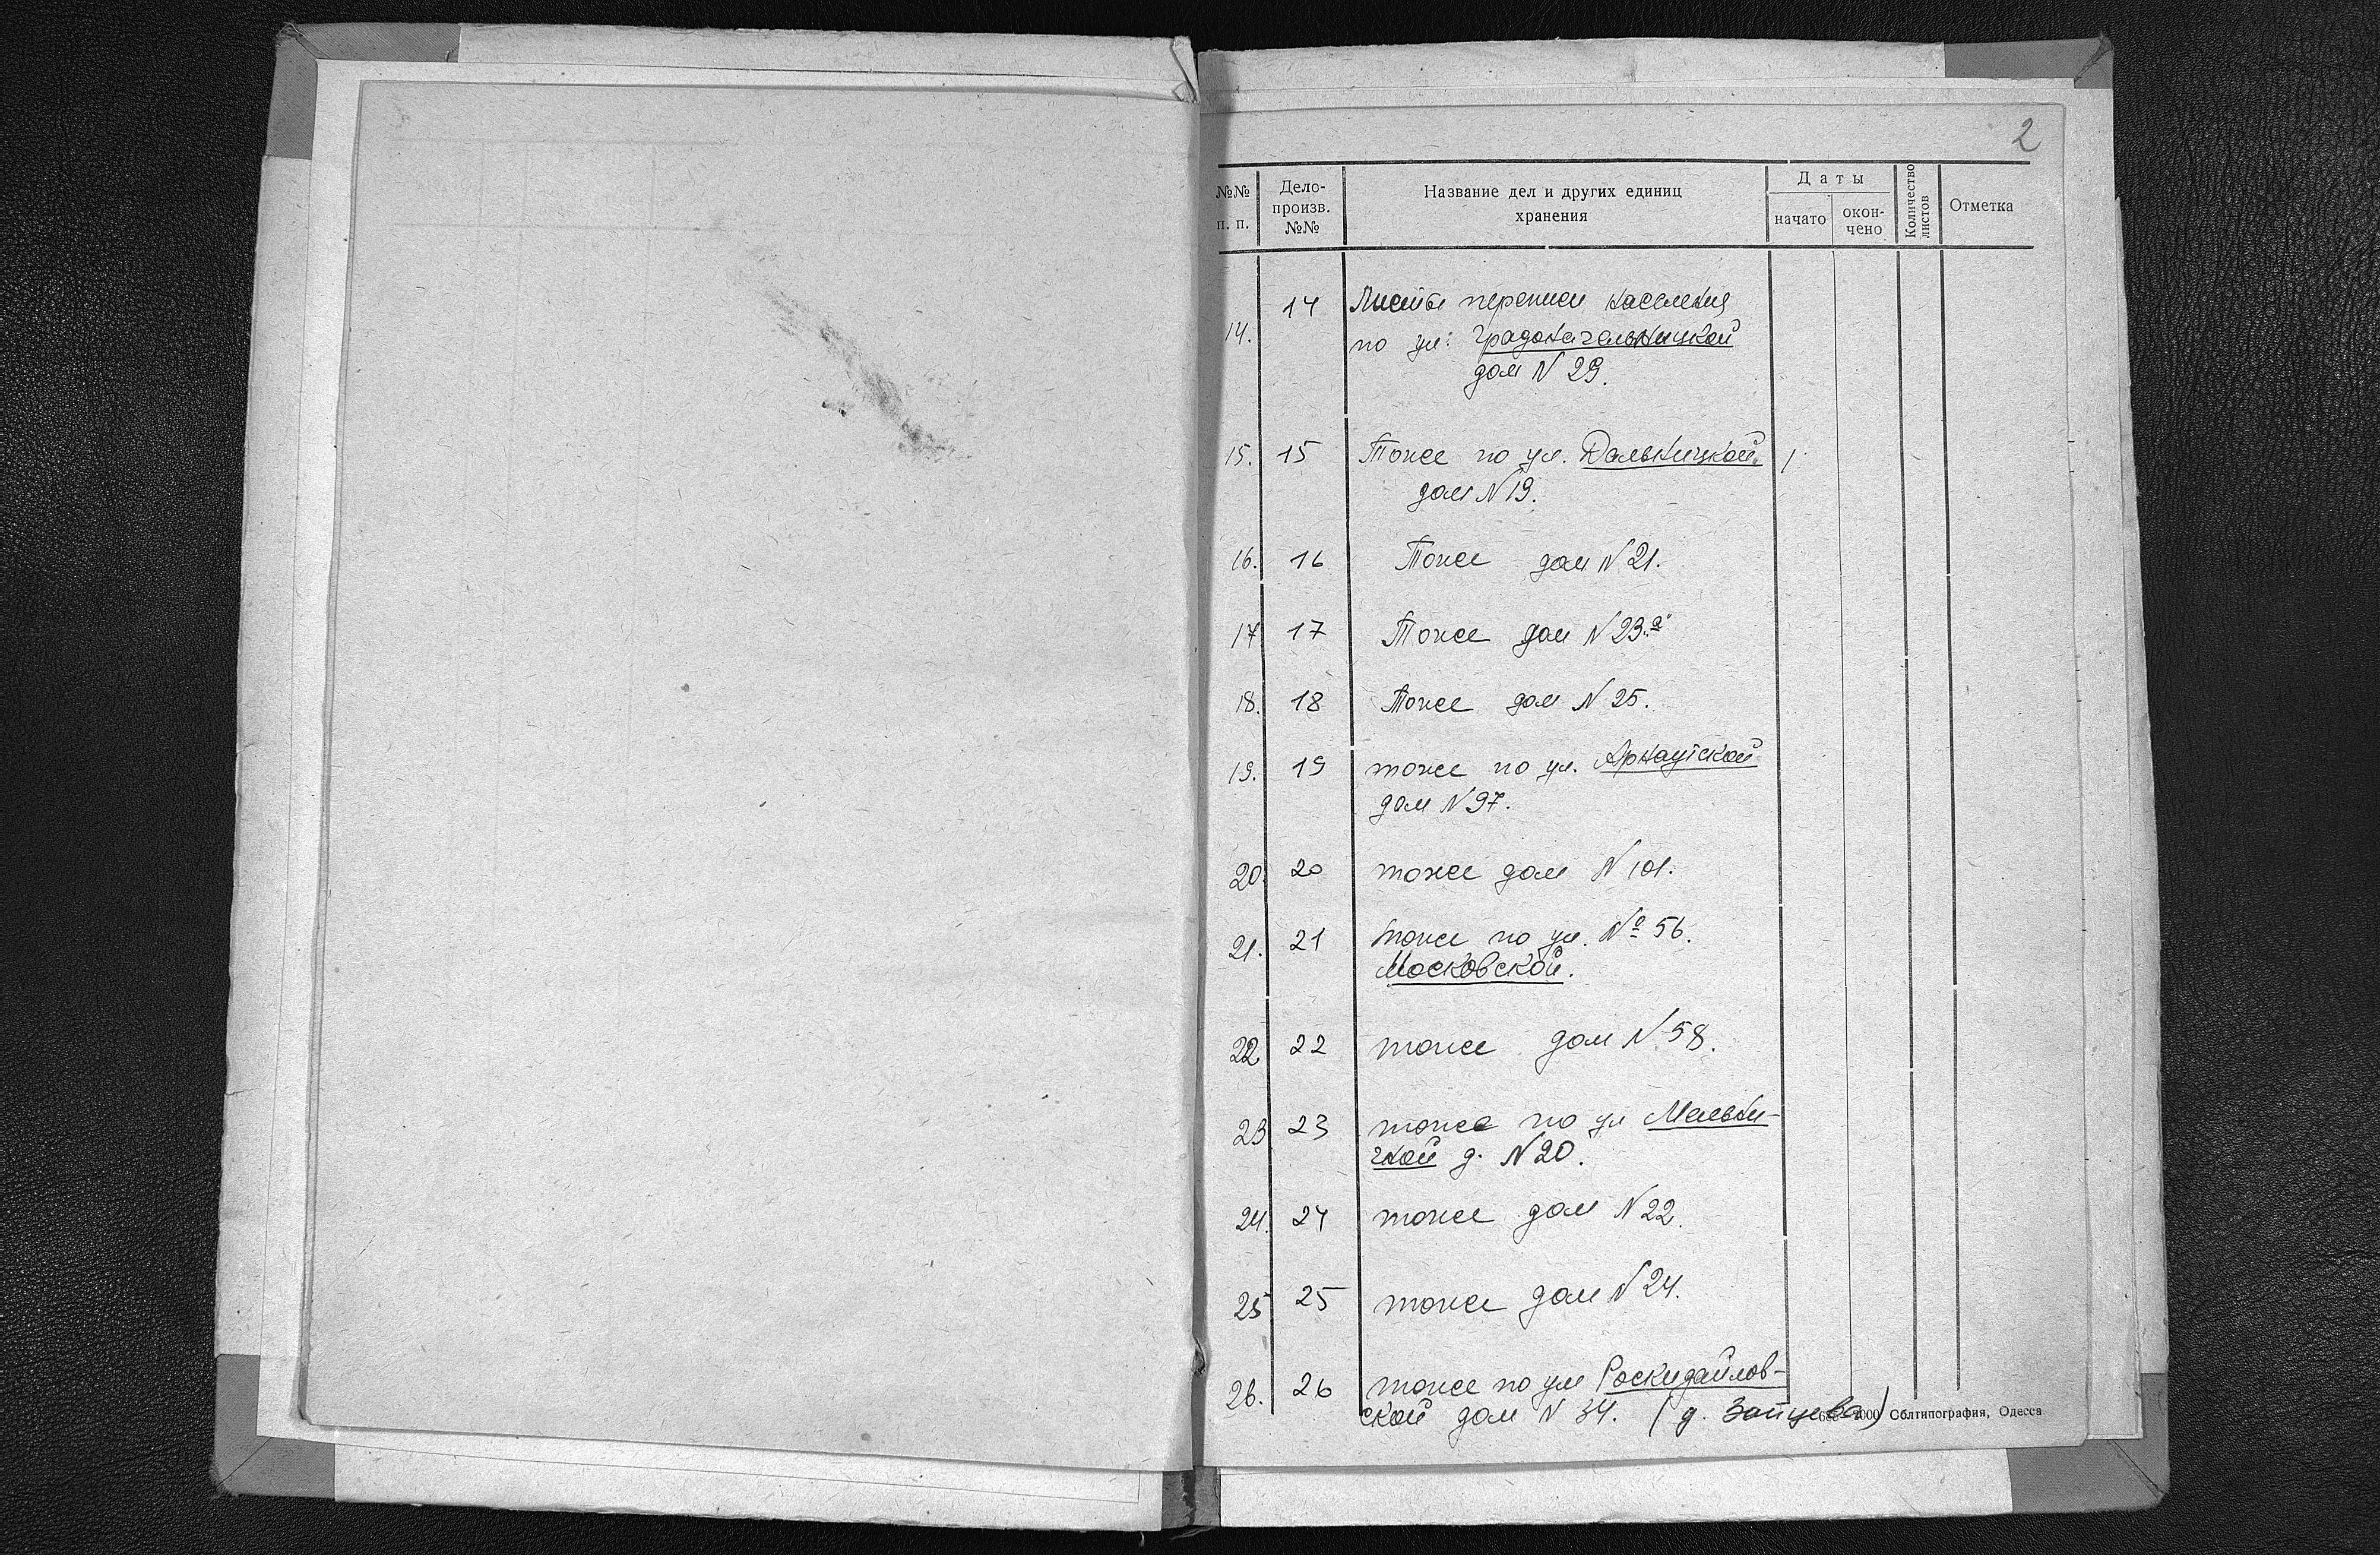 2
№№ п. п.
Дело-произв. №№
Название дел и других единиц хранения
Даты
начато
окончено
Количество листов
Отметка
14. 14 Листы переписи населения
по ул: Градоначальницкой
дом N 29.
15. 15 Тоже по ул. Дальницкой
дом N 19.
16. 16 Тоже дом N 21.
17 17 Тоже дом N 23 „а"
18. 18 Тоже дом N 25.
19. 19 тоже по ул. Арнаутской
дом N 97.
20. 20 тоже дом N 101.
21. 21 тоже по ул. № 56.
Московской.
22 22 тоже дом N 58.
23 23 тоже по ул Мельни-
чной д. N 20.
24. 24 тоже дом N 22.
25 25 тоже дом N 24.
26. 26 тоже по ул Роскидайлов-
ской дом N 34. (д. Зайцева)
Облтипография, Одесса